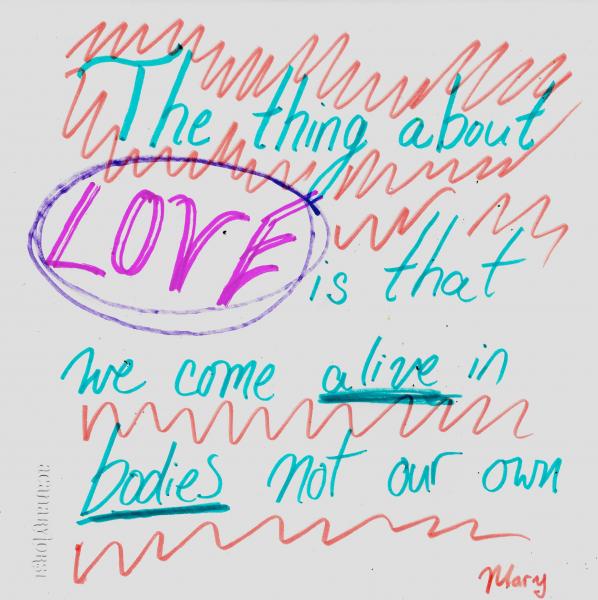 The thing about
LOVE
is that
we come alive in
bodies not our own
Mary